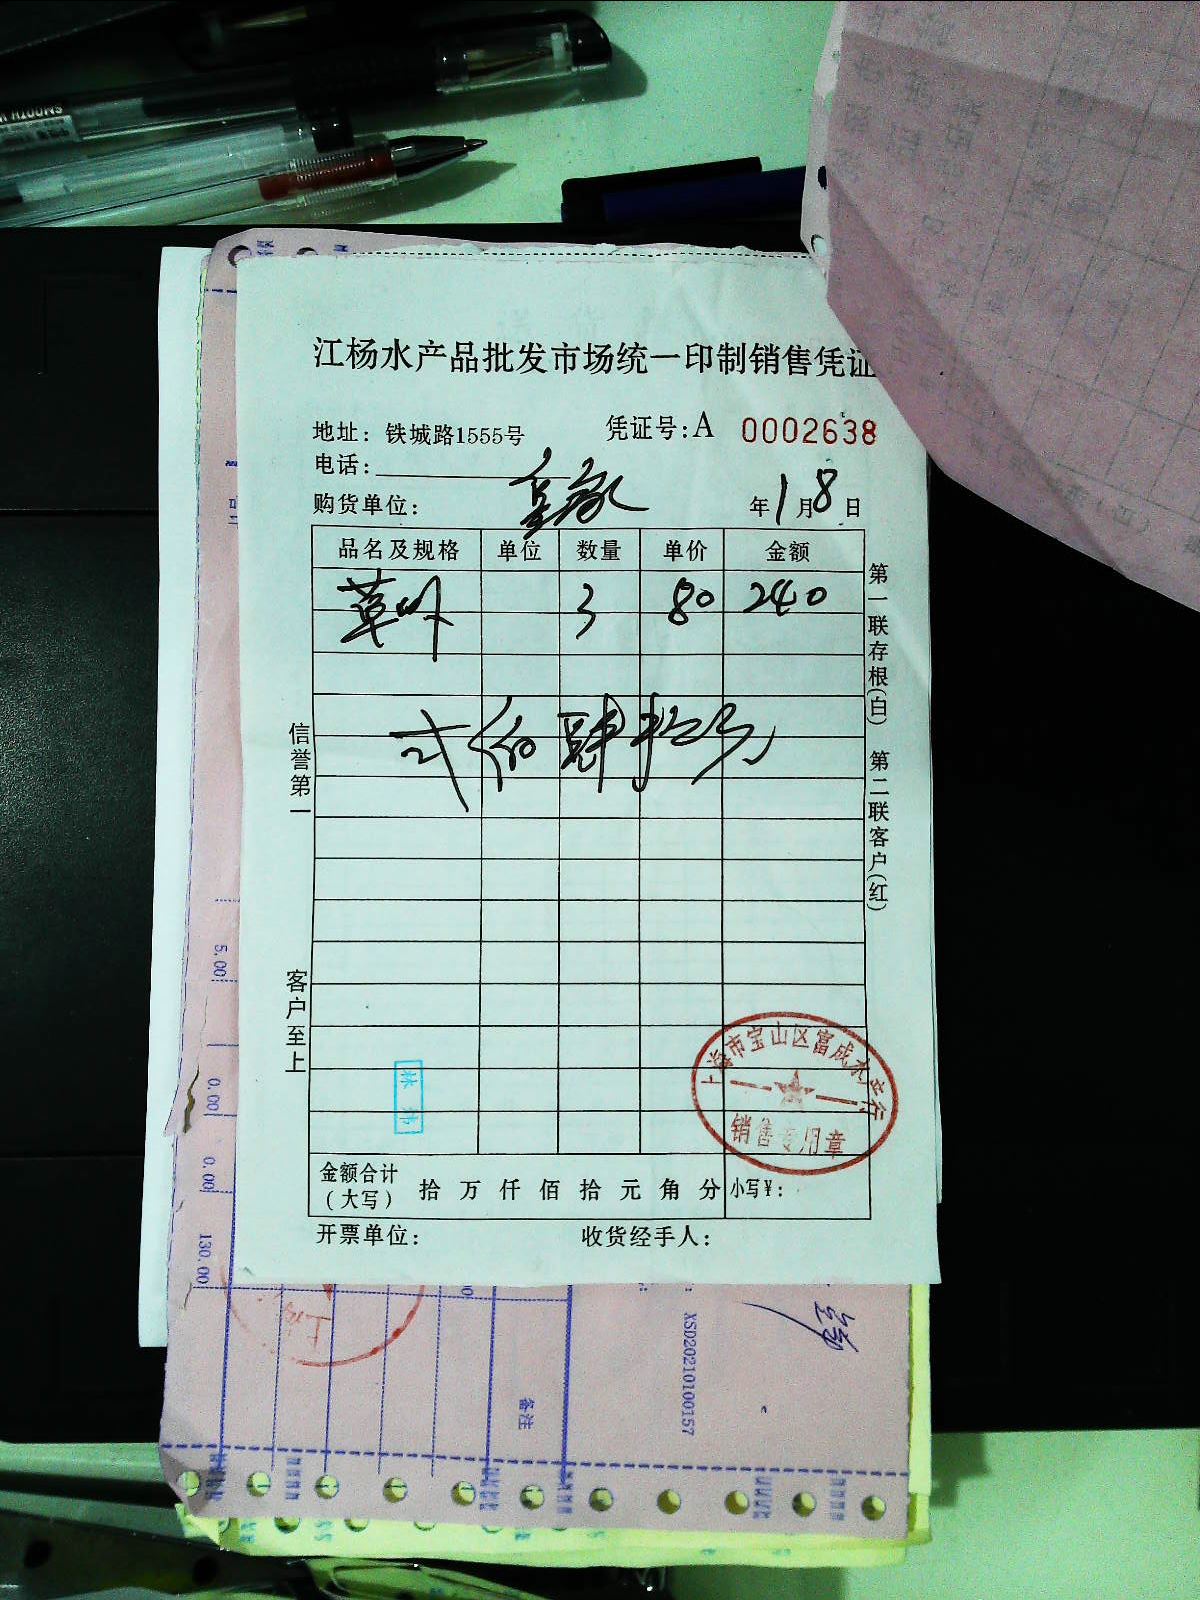 江杨水产品批发市场统一印制销售凭证
地址：铁城路1555号
凭证号:A 0002638
电话:
购货单位:
年1月8日
品名及规格 单位 数量 单价 金额
草虾 3 80 240
弍佰肆拾元
第一联存根(白) 第二联客户(红)
信誉第一
客户至上
林
上海市宝山区富成水产行
销售专用章
金额合计
(大写)
拾 万 仟 佰 拾 元 角 分 小写¥:
开票单位: 收货经手人:
5.00
0.00
0.00
130.00
上海
备注
XSD20210100157